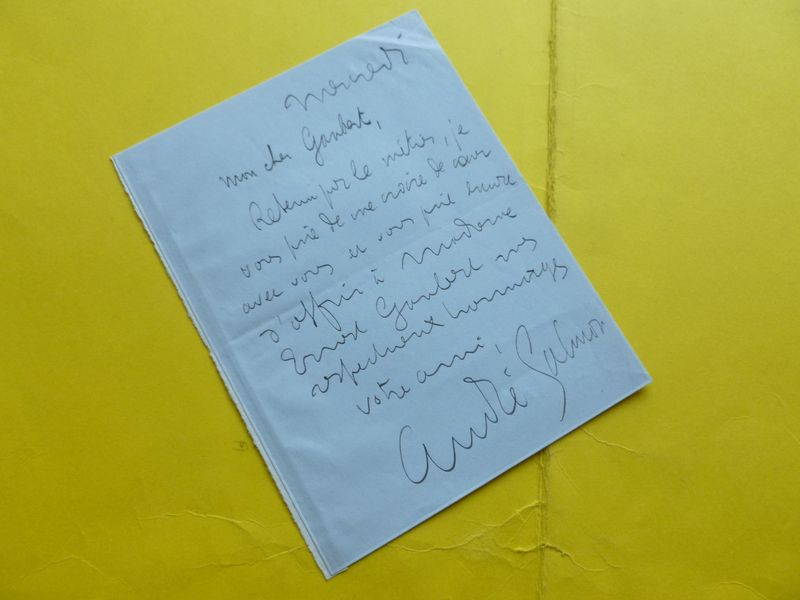 Mercredi
Mon cher Gaubert,
Retenu par le métier, je
vous prie de me croire de cœur
avec vous et vous prie encore
d'offrir à Madame
Ernest Gaubert mes
respectueux hommages
votre ami,
André Salmon